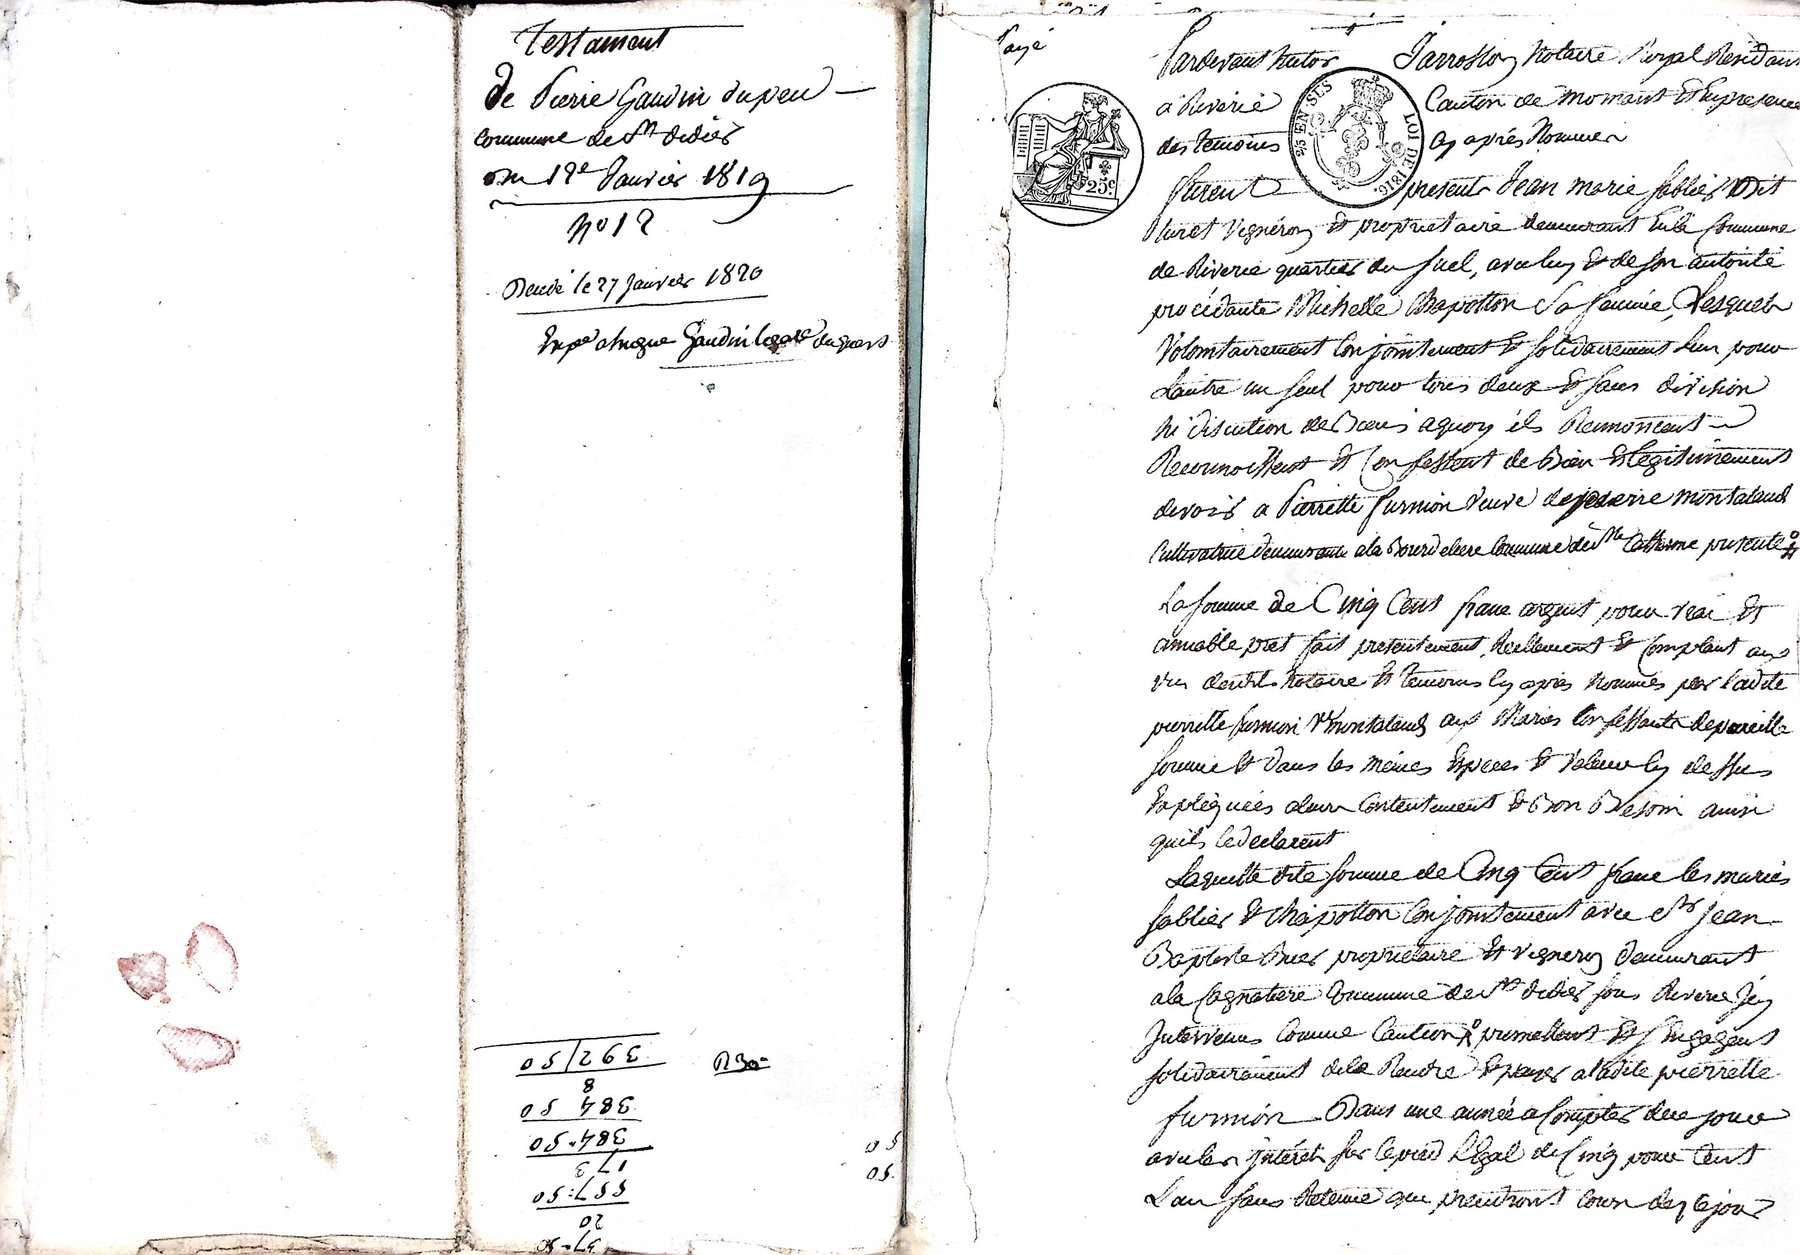 Testament
de Pierre Gaudin dupeu
commune de St didier
du 12e Janvier 1819
No 12
Rendu le 27 Janvier 1820
Gaudin
392/50
8
384 50
384-50
173
557:50
20
37-50
R 30=
50
50
payé
Pardevant Nutor Jarrosson Notaire Royal Residant
à Riverie Canton de mornant Et En presence
des temoins Cy après Nommés
25 EN SUS
LOI DE 1816
25c
furent présents Jean marie fablier Dit
Vignéron Et proprietaire demeurant En la Commune
de Riverie quartier du fuel, avecluy Et de son autorité
procédante Michelle Chapotton Sa femme, Lesquels
Volontairement Conjointement Et solidairement L'un pour
Lautre un seul pour tous deux Et sans division
Ni discution de Biens aquoy ils Renoncent
Reconnoissent Et Confessent de Bien Et légitimement
devoir a Pierrette furnion Veuve de pierre montaland
Cultivatrice demeurante ala Bourdeliere Commune de Ste Catherine presente
La somme de Cinq Cent franc argent pour vrai Et
amiable pret fait presentement, Reellement Et Comptant aux
vu desdits Notaire Et temoins Cy après Nommés par Ladite
pierrette furnion Ve montaland aux Mariés Confessants depareille
somme Et dans les mêmes Especes Et Valeur Cy dessus
Expliquées aleur Contentement Et Bon Besoin ainsi
quils le declarent
Laquelle dite somme de Cinq Cent franc les mariés
fablier Et Chapotton Conjointement avec Sr Jean
Baptiste proprietaire Et vigneron demeurant
ala Commune de St didier sous Riverie Icy
Intervenus Comme Caution promettent Et s'Engagent
solidairement dela Rendre Et payer aladite pierrette
furnion Dans une année a Compter de ce jour
avec les intérêts sur le pied Légal de Cinq pour Cent
L'an sans Retenue qui prendront Cours des ce jour